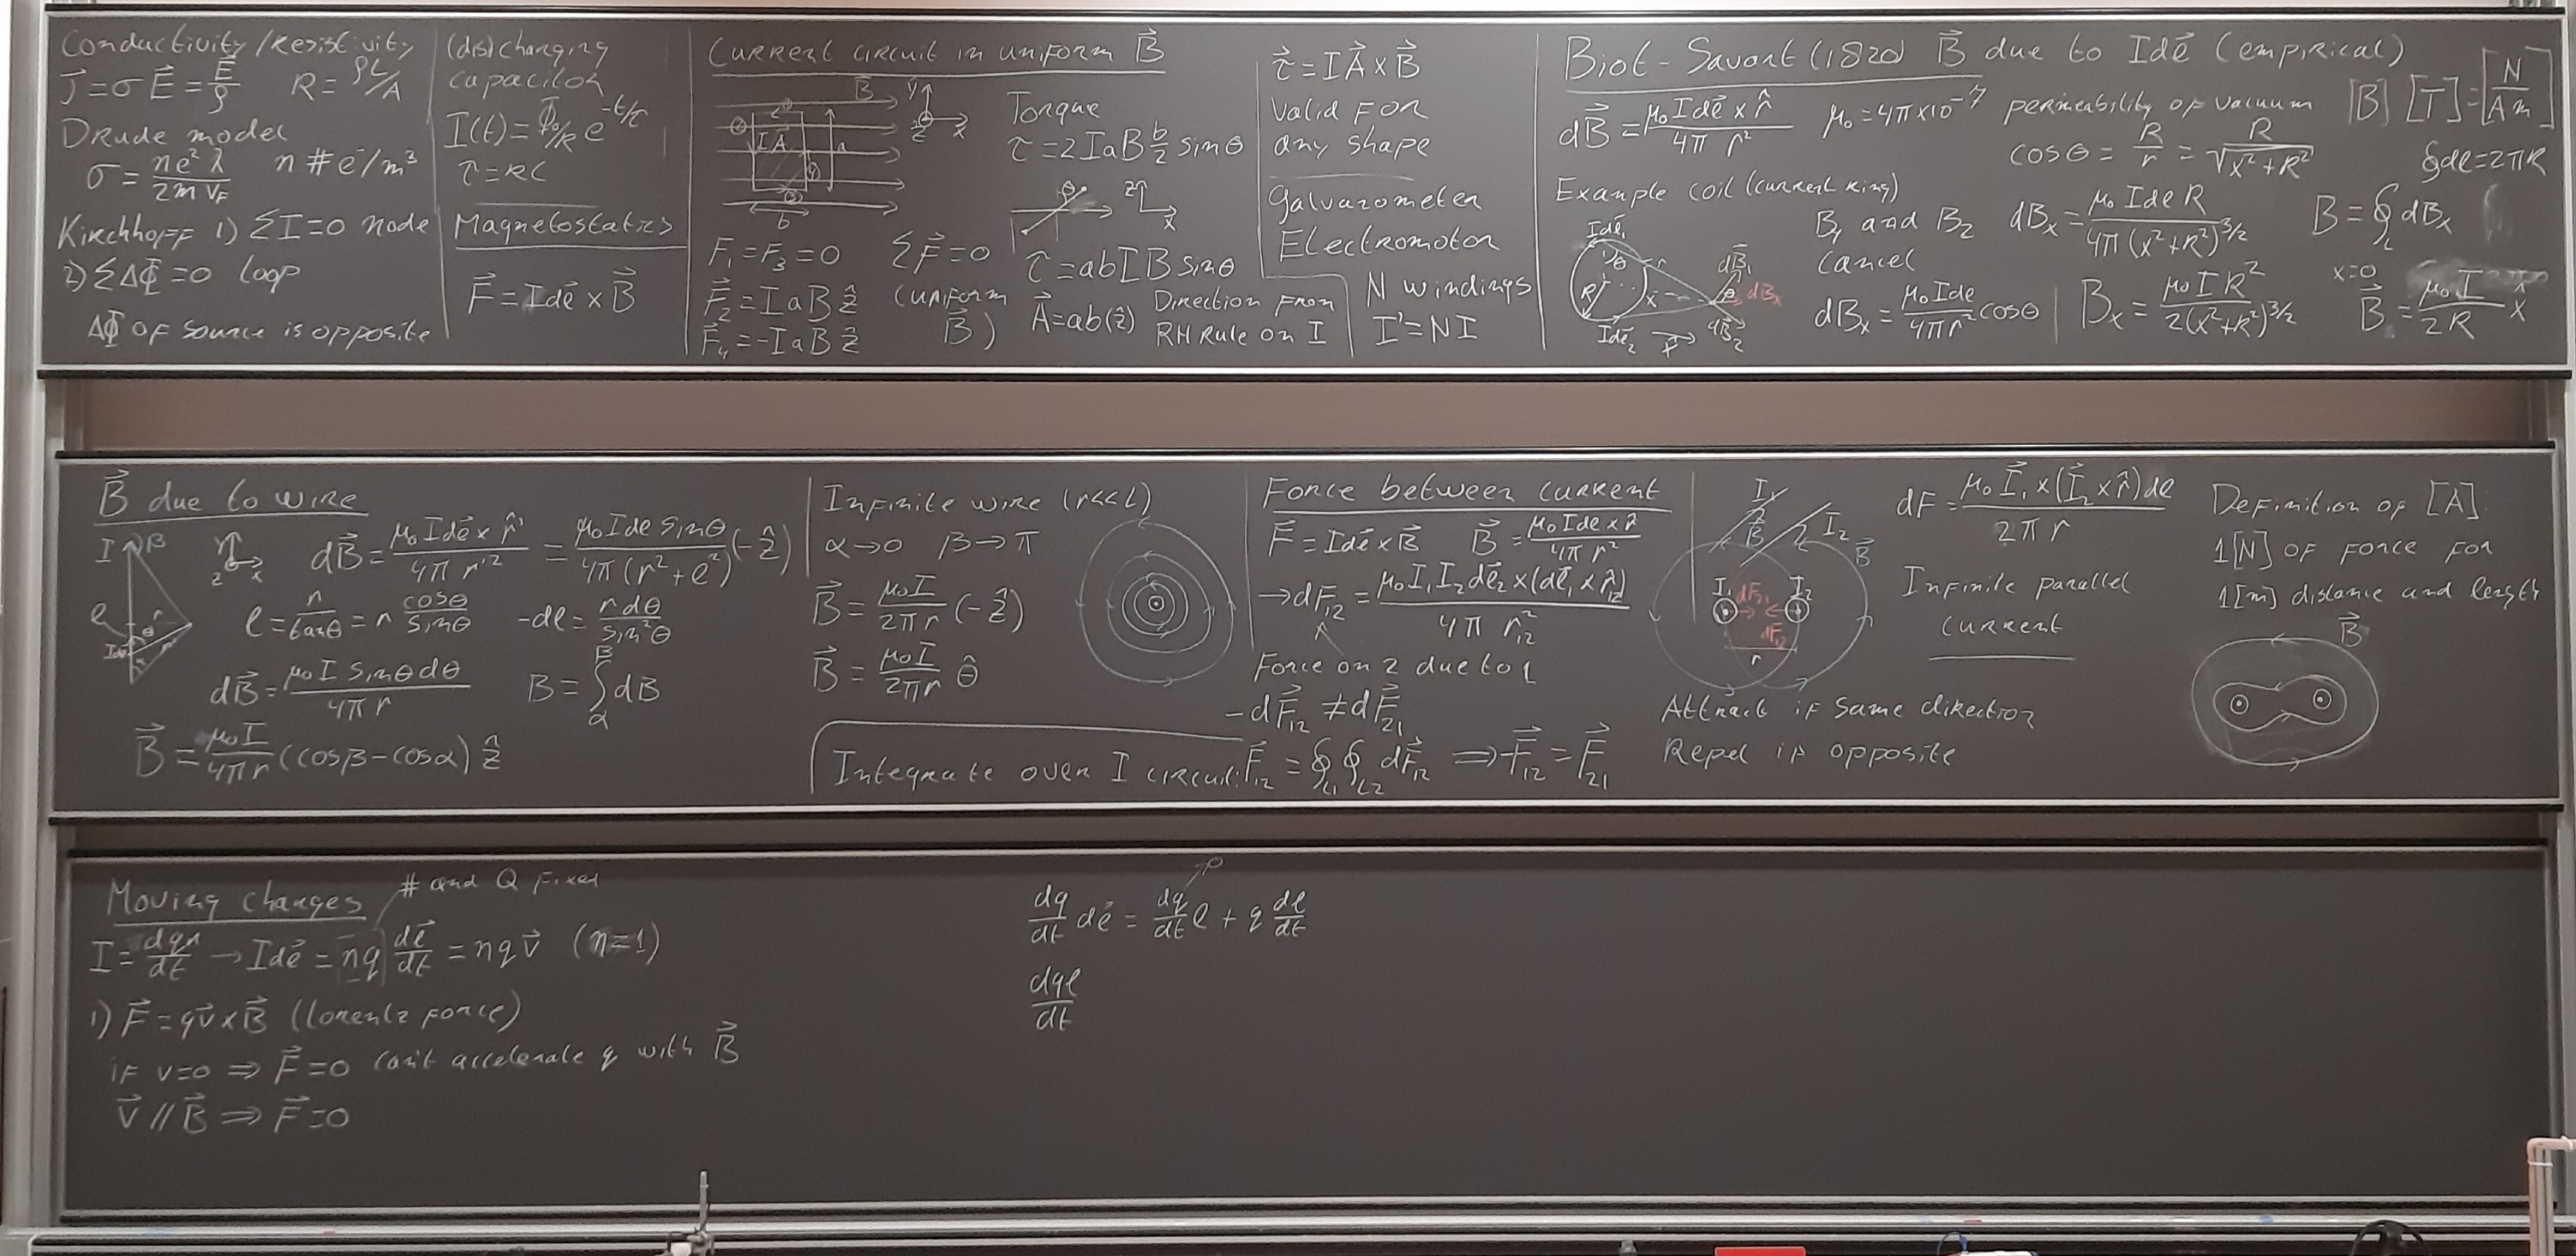 Conductivity/Resistivity
J⃗ = σE⃗ = E⃗/ρ R = ρL/A
Drude model
σ = ne²λ/2mv_F n # e⁻/m³
Kirchhoff 1) ΣI=0 node
2) ΣΔΦ=0 loop
ΔΦ of source is opposite
(dis)charging
capacitor
I(t) = Φ₀/R e^(-t/τ)
τ = RC
Magnetostatics
F⃗ = Idℓ⃗ × B⃗
Current circuit in uniform B⃗
B⃗
y
x
z
I A⃗
a
b
Torque
τ = 2IaB b/2 sinθ
θ
z
x
F₁ = F₃ = 0 ΣF⃗ = 0
F⃗₂ = IaB ẑ (uniform
F⃗₄ = -IaB ẑ B⃗)
τ = abIB sinθ
A⃗ = ab(ẑ) Direction from
RH Rule on I
τ⃗ = IA⃗ × B⃗
Valid for
any shape
Galvanometer
Electromotor
N windings
I' = NI
Biot-Savart (1820) B⃗ due to Idℓ⃗ (empirical)
dB⃗ = μ₀Idℓ⃗ × r̂/4π r² μ₀ = 4π×10⁻⁷ permeability of vacuum [B] [T] = [N/Am]
cosθ = R/r = R/√(x²+R²) ∮dℓ = 2πR
Example coil (current ring)
Idℓ⃗₁
θ
r
R
x
dB⃗₁
θ
dBₓ
dB⃗₂
Idℓ⃗₂
x̂
B₁ and B₂
cancel
dBₓ = μ₀Idℓ/4πr² cosθ
dBₓ = μ₀IdℓR/4π(x²+R²)^3/2 B = ∮_L dBₓ
Bₓ = μ₀IR²/2(x²+R²)^3/2
x=0
B⃗ = μ₀I/2R x̂
B⃗ due to wire
I β
ℓ
r
θ
Idℓ
α
y
z x
dB⃗ = μ₀Idℓ⃗ × r̂'/4π r'² = μ₀Idℓ sinθ/4π(r²+ℓ²) (-ẑ)
ℓ = r/tanθ = r cosθ/sinθ -dℓ = r dθ/sin²θ
dB⃗ = μ₀I sinθ dθ/4πr B = ∫_α^β dB
B⃗ = μ₀I/4πr (cosβ - cosα) ẑ
Infinite wire (r<<L)
α→0 β→π
B⃗ = μ₀I/2πr (-ẑ)
B⃗ = μ₀I/2πr θ̂
Force between current
F⃗ = Idℓ⃗ × B⃗ B⃗ = μ₀Idℓ × r̂/4π r²
→ dF⃗₁₂ = μ₀I₁I₂dℓ⃗₂ × (dℓ⃗₁ × r̂₁₂)/4π r₁₂²
Force on 2 due to 1
-dF⃗₁₂ ≠ dF⃗₂₁
Integrate over I circuit: F⃗₁₂ = ∮_L1 ∮_L2 dF⃗₁₂ ⟹ -F⃗₁₂ = F⃗₂₁
I₁
B⃗
I₂
B⃗
I₁ dF₂₁ I₂
dF₁₂
r
dF = μ₀I⃗₁ × (I⃗₂ × r̂)dℓ/2πr
Infinite parallel
current
Attract if same direction
Repel if opposite
Definition of [A]
1[N] of force for
1[m] distance and length
B⃗
Moving charges # and Q fixed
I = dqn/dt → Idℓ⃗ = nq dℓ⃗/dt = nqv⃗ (n=1)
1) F⃗ = qv⃗ × B⃗ (Lorentz force)
if v=0 ⟹ F⃗=0 can't accelerate q with B⃗
v⃗ // B⃗ ⟹ F⃗=0
0
dq/dt dℓ⃗ = dq/dt ℓ + q dℓ/dt
dqℓ/dt